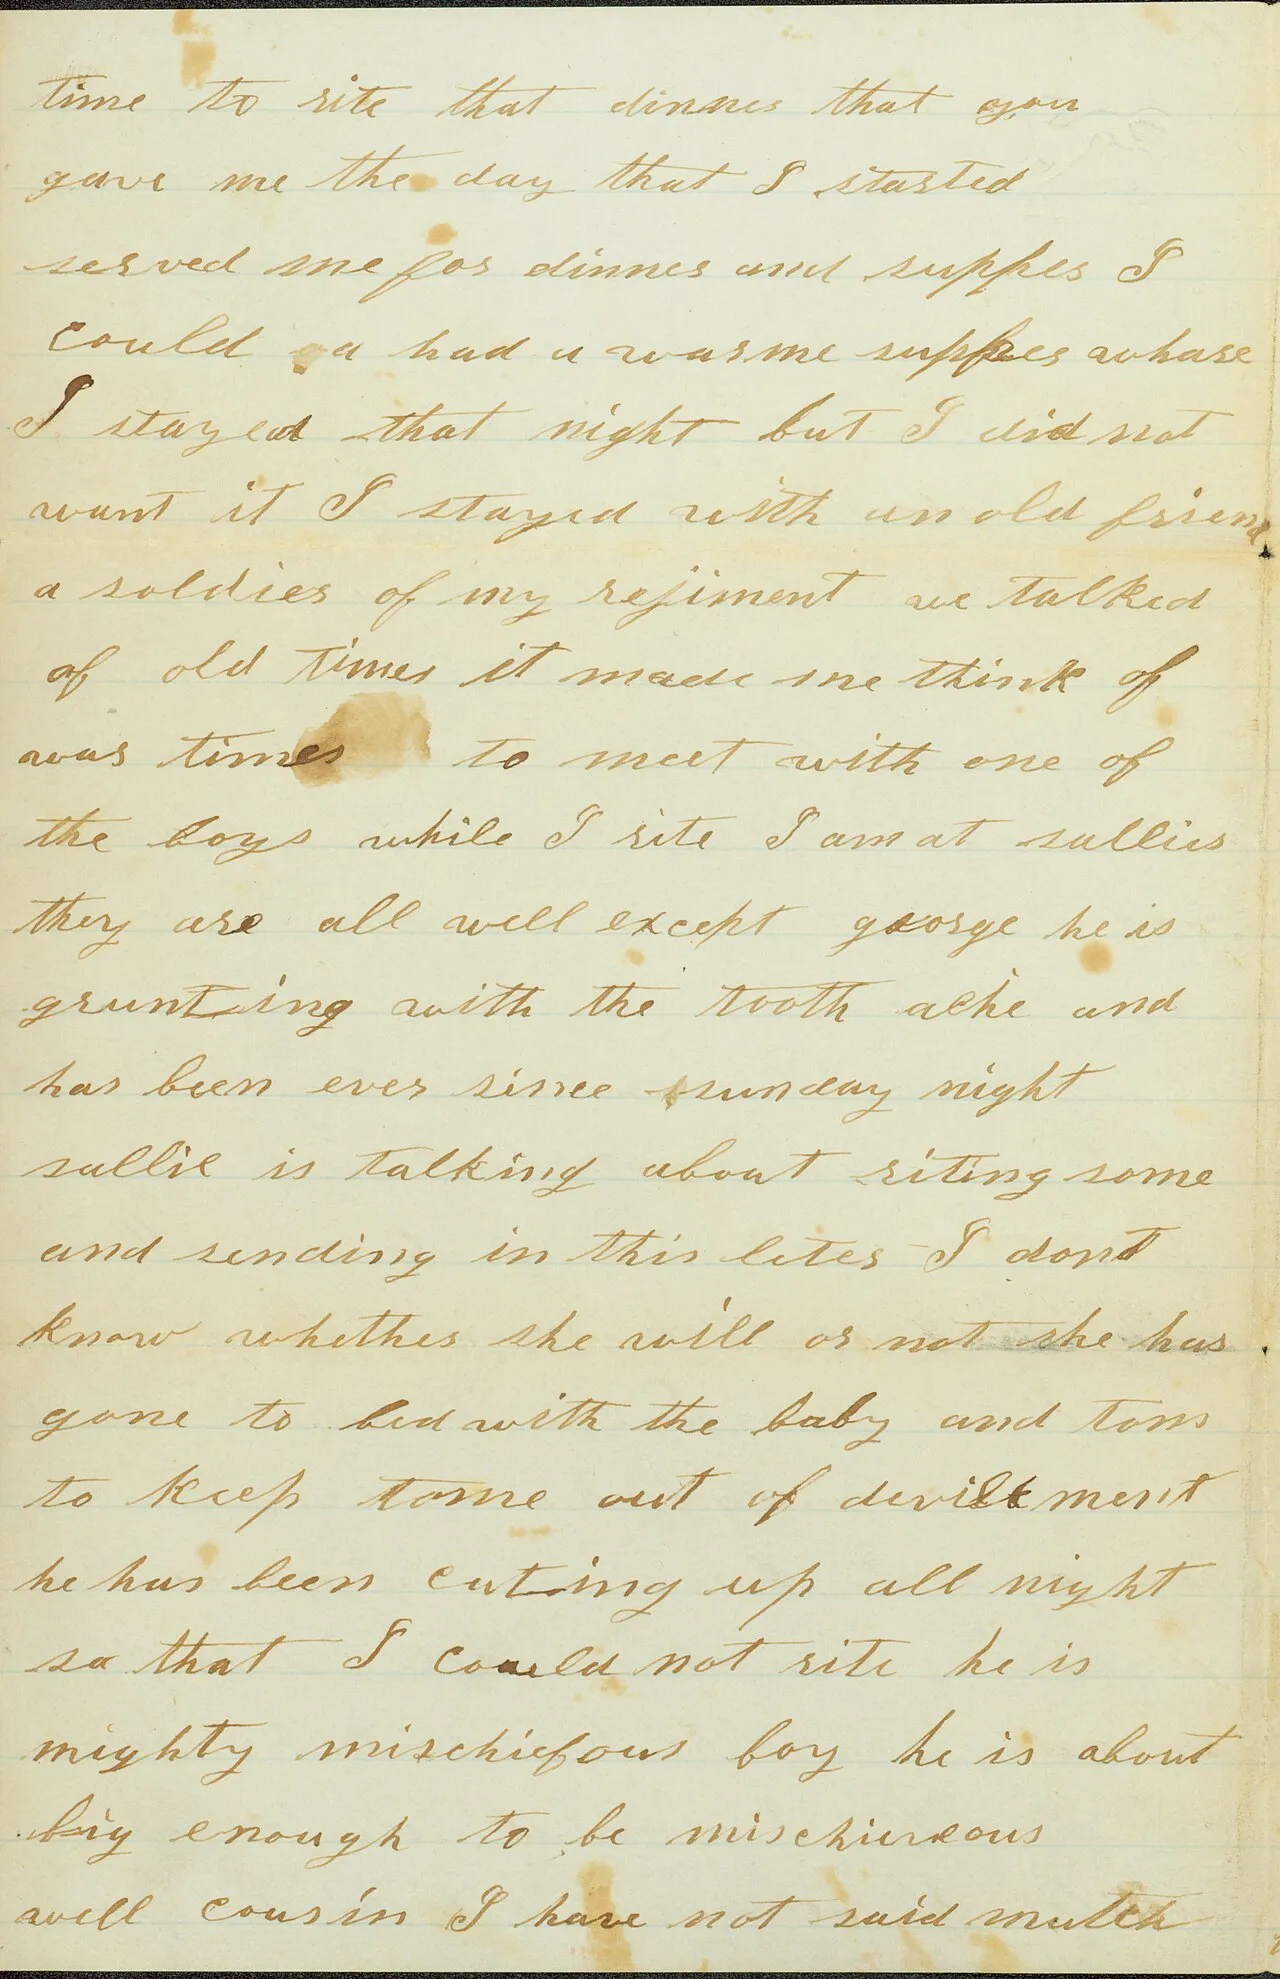 time to rite that dinner that you
gave me the day that I started
served me for dinner and supper I
could a had a warme supper whare
I stayed that night but I did not
want it I stayed with an old friend
a soldier of my rejiment we talked
of old times it made me think of
war times to meet with one of
the boys while I rite I am at sallies
they are all well except george he is
grunting with the tooth ache and
has been ever since sunday night
sallie is talking about riting some
and sending in this leter I dont
know whether she will or not she has
gone to bed with the baby and tom
to keep tome out of devilment
he has been cuting up all night
so that I could not rite he is
mighty mischiefous boy he is about
big enough to be mischieveous
well cousin I have not said mutch